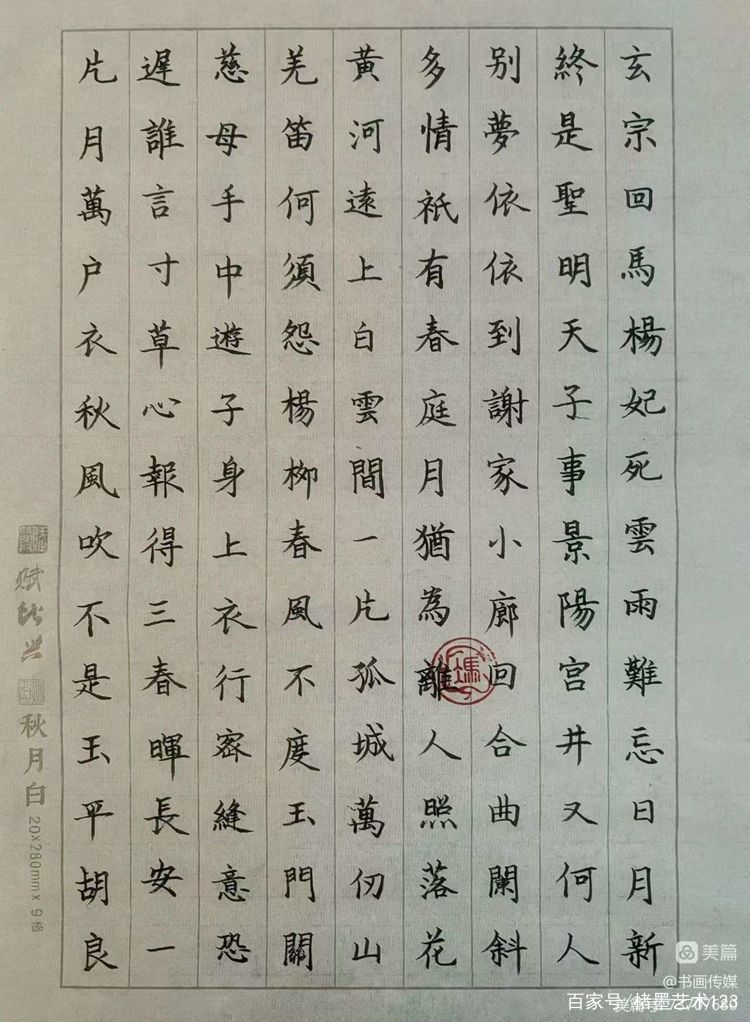 玄宗回馬楊妃死雲雨難忘日月新
終是聖明天子事景陽宫井又何人
别夢依依到謝家小廊回合曲闌斜
多情衹有春庭月猶為離人照落花
黄河遠上白雲間一片孤城萬仞山
羌笛何須怨楊柳春風不度玉門關
慈母手中遊子身上衣行密縫意恐
遲誰言寸草心報得三春暉長安一
片月萬户衣秋風吹不是玉平胡良
赋比兴
秋月白
20x280mmx9格
美篇
@书画传媒
百家号/格墨艺术123